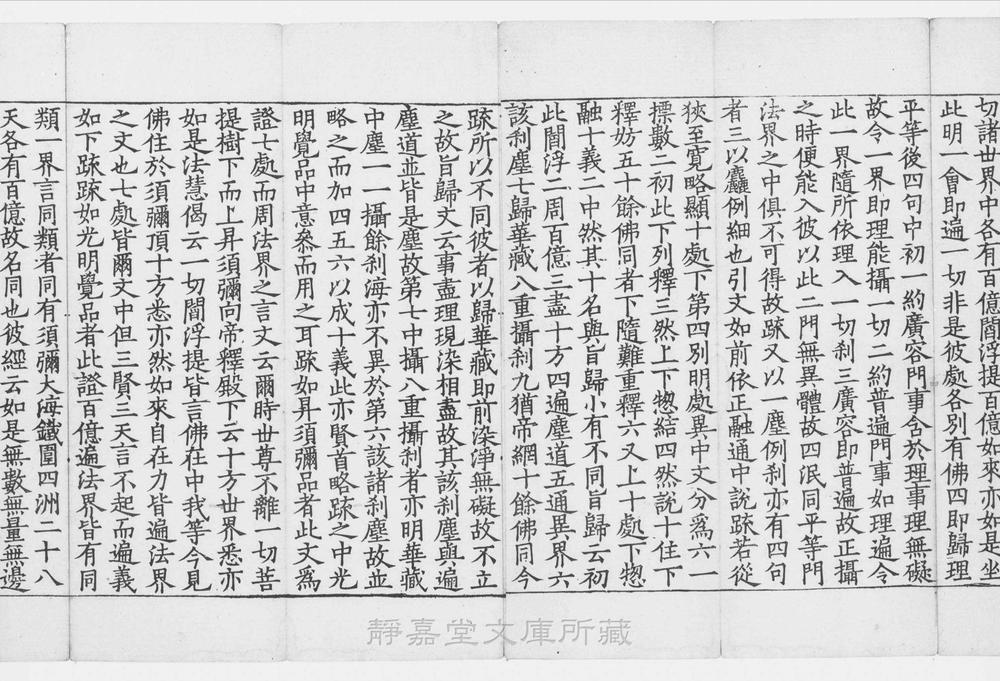 切諸世界中各有百億閻浮提百億如來亦如是坐
此明一會即遍一切非是彼處各別有佛四即歸理
平等後四句中初一約廣容門事含於理事理無礙
故令一界即理能攝一切二約普遍門事如理遍令
此一界隨所依理入一切刹三廣容即普遍故正攝
之時便能入彼以此二門無異體故四泯同平等門
法界之中俱不可得故䟽又以一塵例刹亦有四句
者三以麤例細也引文如前依正融通中說䟽若從
狹至寬略顯十處下第四別明處異中文分爲六一
摽數二初此下列釋三然上下惣結四然說十住下
釋妨五十餘佛同者下隨難重釋六又上十處下惣
融十義二中然其十名與旨歸小有不同旨歸云初
此閻浮二周百億三盡十方四遍塵道五通異界六
該刹塵七歸華藏八重攝刹九猶帝網十餘佛同今
䟽所以不同彼者以歸華藏即前染淨無礙故不立
之故旨歸文云事盡理現染相盡故其該刹塵與遍
塵道並皆是塵故第七中攝八重攝刹者亦明華藏
中塵一一攝餘刹海亦不異於第六該諸刹塵故並
略之而加四五六以成十義此亦賢首略䟽之中光
明覺品中意叅而用之耳䟽如昇須彌品者此文爲
證七處而周法界之言文云爾時世尊不離一切菩
提樹下而上昇須彌向帝釋殿下云十方世界悉亦
如是法慧偈云一切閻浮提皆言佛在中我等今見
佛住於須彌頂十方悉亦然如來自在力皆遍法界
之文也七處皆爾文中但三賢三天言不起而遍義
如下䟽䟽如光明覺品者此證百億遍法界皆有同
類一界言同類者同有須彌大海鐵圍四洲二十八
天各有百億故名同也彼經云如是無數無量無邊
靜嘉堂文庫所藏